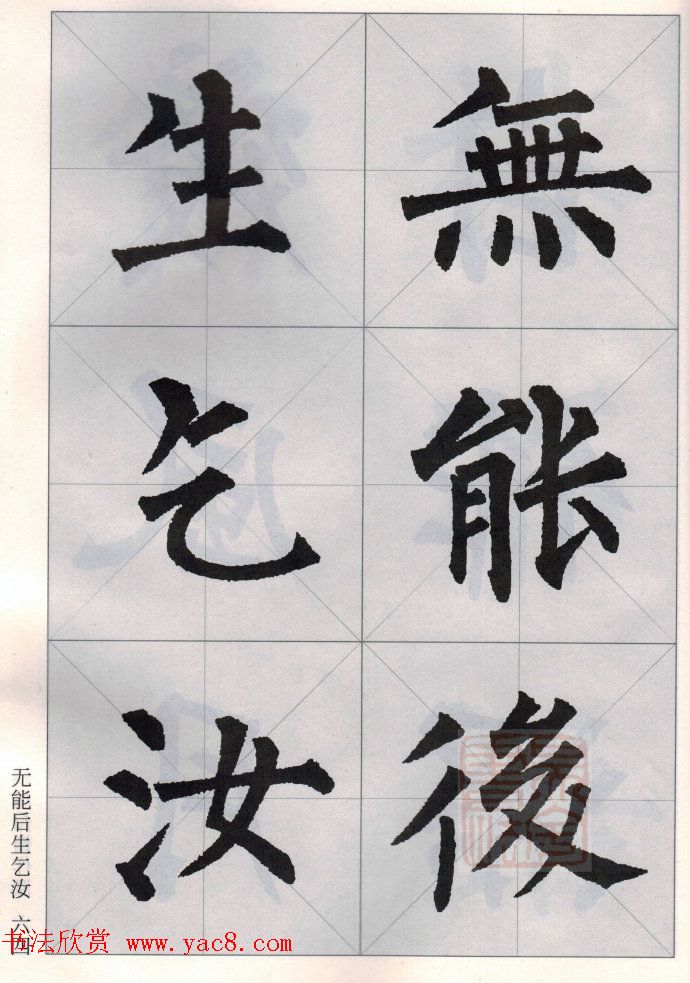 無能後
生乞汝
无能后生乞汝 六四
书法欣赏 www.yac8.com